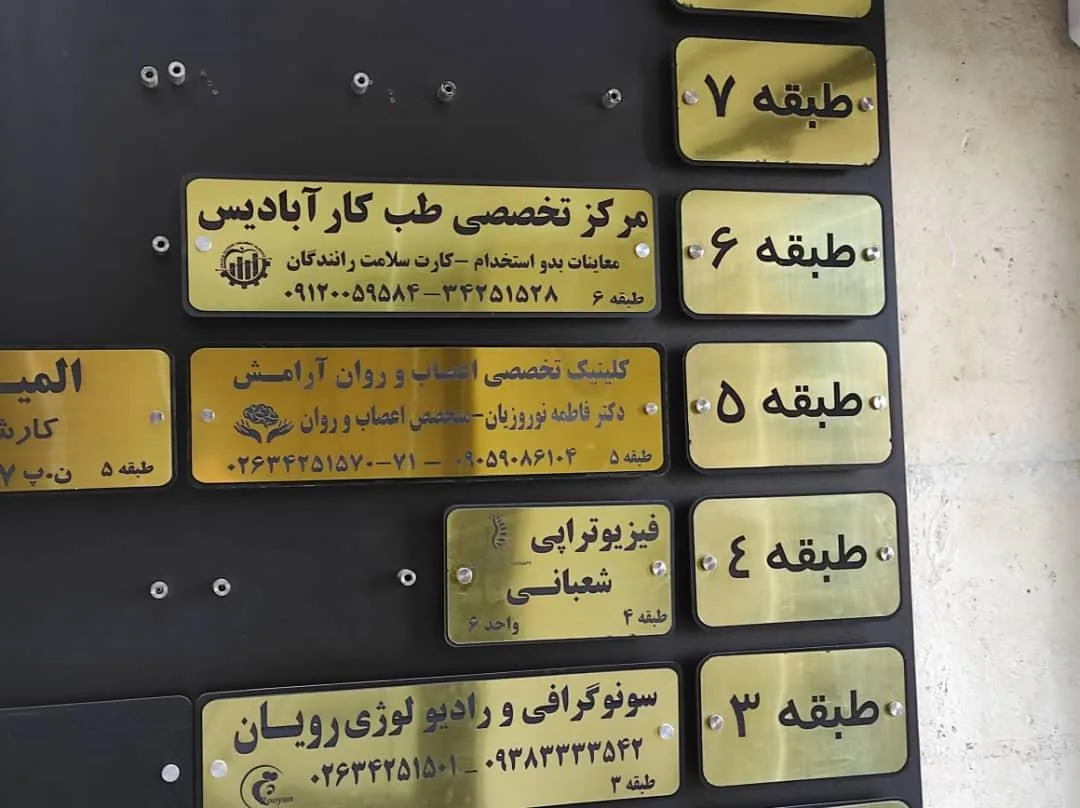 طبقه ۷
طبقه ۶
مرکز تخصصی طب کار آبادیس
معاینات بدو استخدام – کارت سلامت رانندگان
طبقه ۶
۰۹۱۲۰۰۵۹۵۸۴ – ۳۴۲۵۱۵۲۸
طبقه ۵
کلینیک تخصصی اعصاب و روان آرامش
دکتر فاطمه نوروزیان - متخصص اعصاب و روان
طبقه ۵
۰۲۶۳۴۲۵۱۵۷۰-۷۱ – ۰۹۰۵۹۰۸۶۱۰۴
المیـ
کارش
طبقه ۵
ن.پ ۷
طبقه ۴
فیزیوتراپی
شعبانی
طبقه ۴
واحد ۶
طبقه ۳
سونوگرافی و رادیولوژی رویان
۰۲۶۳۴۲۵۱۵۰۱ – ۰۹۳۸۳۳۳۳۵۴۲
طبقه ۳
Rooyan